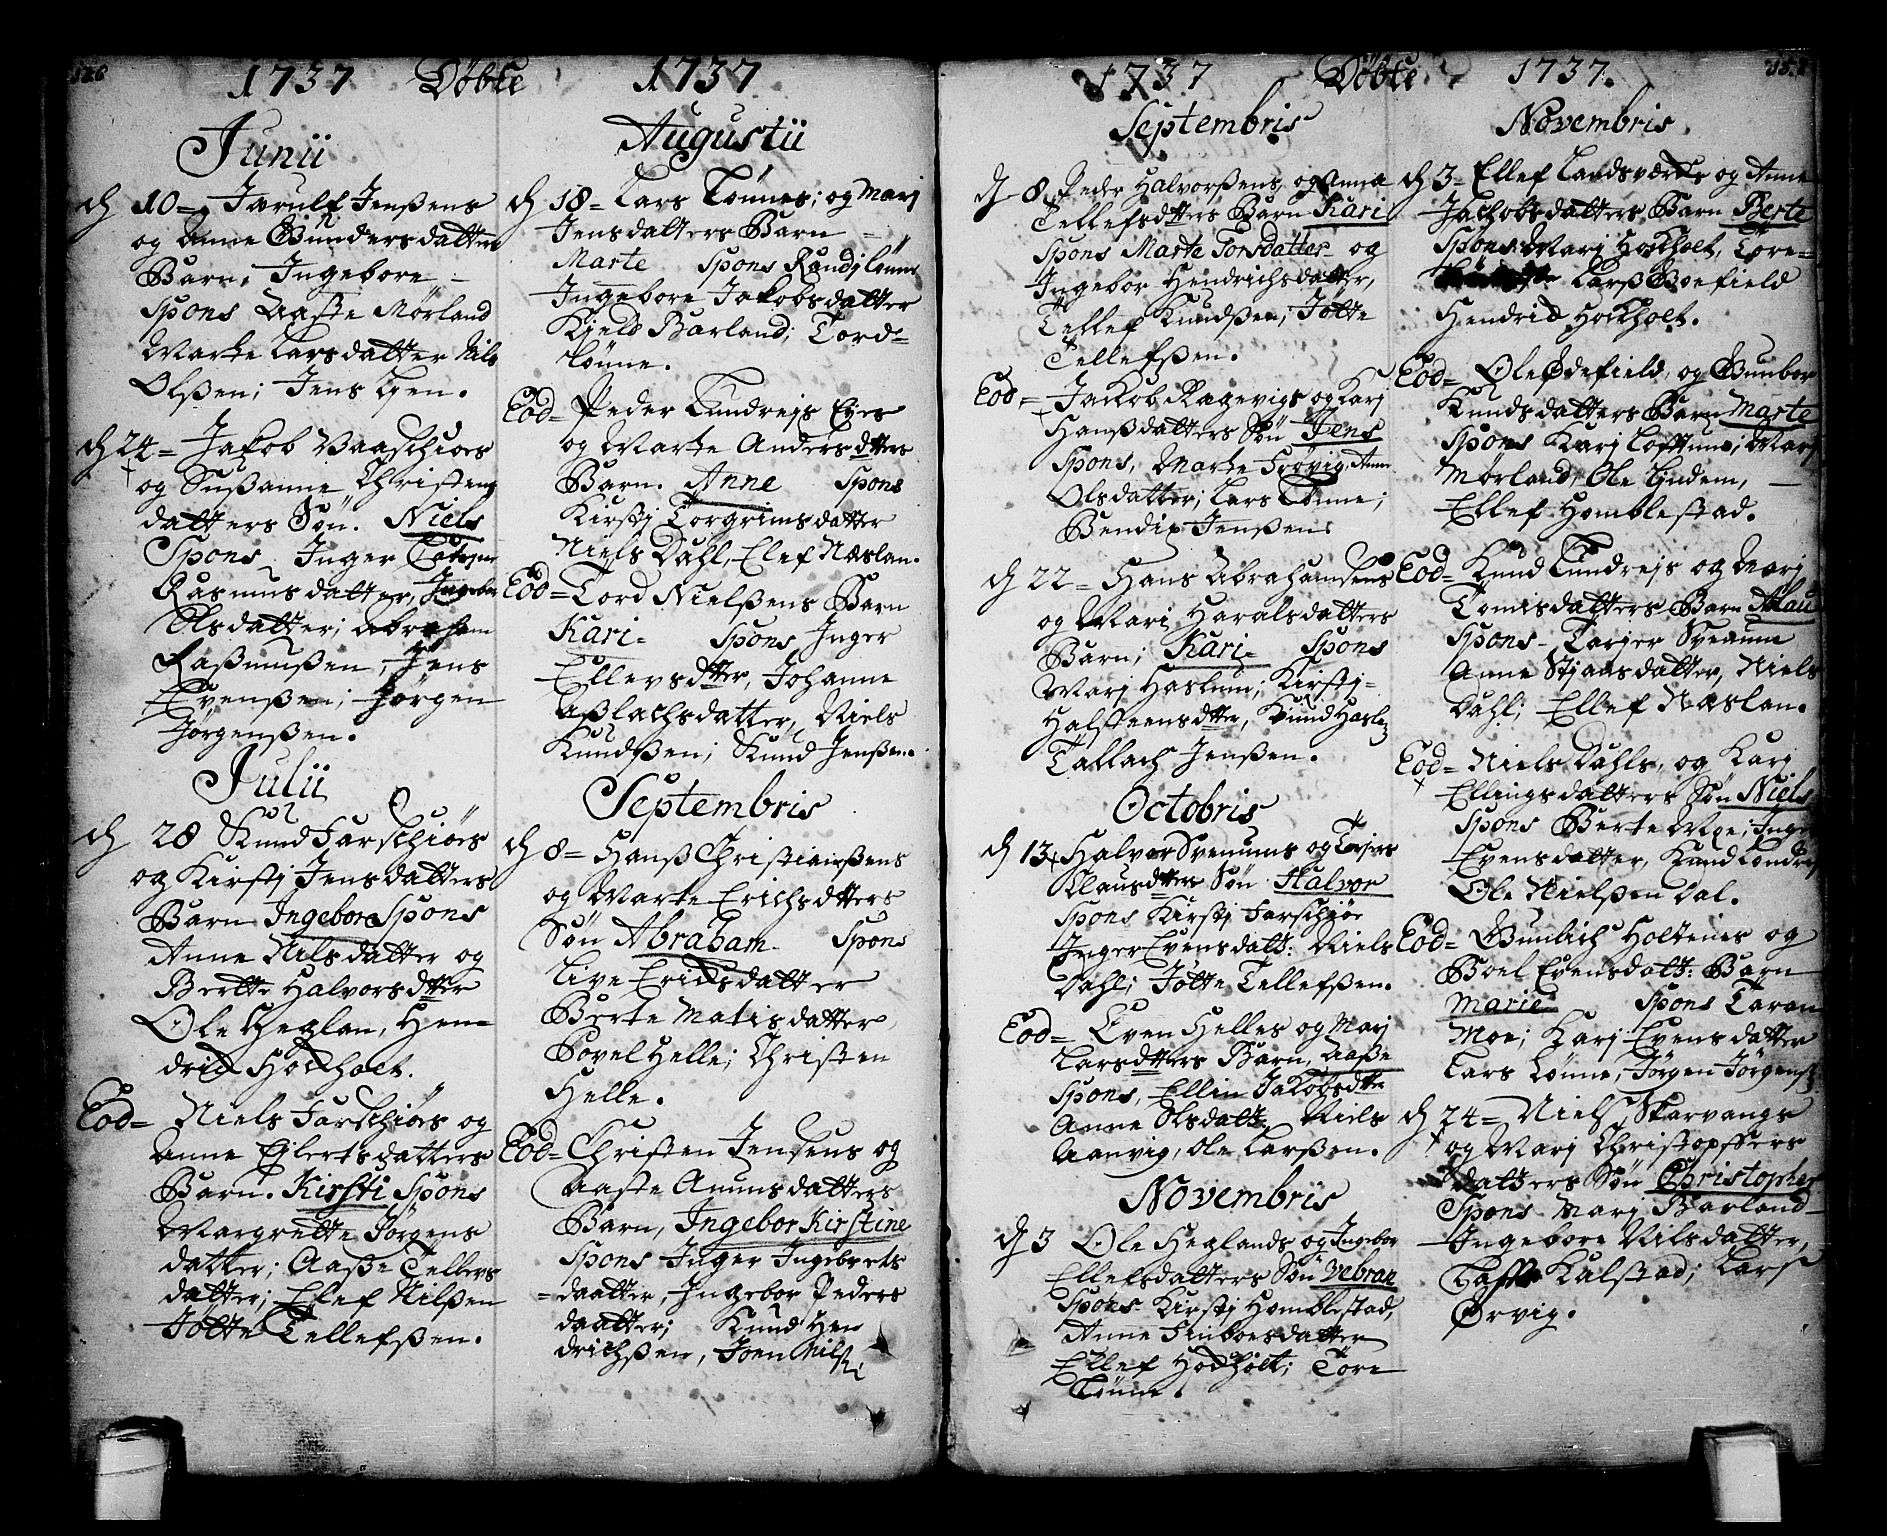 126
1737 Döbte 1737
Junii
d 10 = Jarulf Jenßens
og Anne Gundersdatters
Barn. Ingebore –
Spons Aaste Mørland
Marte Larsdatter Nils
Olßen; Jens Igen.
d 24 = Jakob Vaaschiørs
og Sußanne Christens
datters Søn. Niels
Spons Inger
Rasmusdatter, Ingebor
Olsdatter; Abraham
Raßmußen, Jens
Evenßen; Jørgen
Jørgenßen.
Julii
d 28 Knud Farschiørs
og Kirstj Jensdatters
Barn Ingebore Spons
Anne Nilsdatter og
Berthe Halvorsdtter
Ole Heglan, Hen=
drich Hockholt.
Eod= Niels Farschiørs og
Anne Eilertsdatters
Barn. Kirsti Spons
Margrette Jørgens
datter; Aaße Tellevs
datter; Elef Nilßen
Jøtte Tellefßen.
Augustii
d 18 = Lars Lønnes; og Marj
Jensdatters Barn –
Marte Spons Randj Lønne
Ingebore Jakobsdatter
Kjeld Barland; Tord=
Lønne.
Eod= Peder Tundrejs Eies
og Marte Andersdtters
Barn. Anne Spons
Kirstj Torgrimsdatter
Niels Dahl, Elef Næslan.
Eod= Tord Nielßens Barn
Kari= Spons Inger
Ellevsdtter, Johanne
Aßlachsdatter, Niels
Knudßen; Knud Jenßen.
Septembris
d 8 = Hanß Christianßens
og Marte Erichsdtters
Søn Abraham. Spons
Live Ericksdatter
Berte Matisdatter,
Povel Helle; Christen
Helle.
Eod= Christen Jensens og
Aaste Amunsdatters
Barn, Ingebor Kirstine
Spons Inger Ingebrets
=daatter, Ingebor Peders
daatter; Knud Hen
drichßen, Joen Nilß:
1737 Döbte 1737.
Septembris
d 8 Peder Halvorßens og Anna
Tellefsdtters Barn Kari
Spons Marte Torsdatter og
Ingebor Hendrichsdatter,
Tellef Knudßen; Jøtte
Tellefßen.
Eod= Jackob Ragevigs og Karj
Hanßdatters Søn Jens
Spons, Marte Frøvig, Anne
Olsdatter; Lars Lønne;
Bendix Jenßen.
d 22 = Hans Abrahamsens
og Mari Haralsdatters
Barn; Kari= Spons
Marj Haslum, Kirstj=
Halsteensdtter, Knud Hasle
Tallach Jenßen.
Octobris
d 13 Halvor Svenums og Torjers
Klausdtters Søn Halvor
Spons Kirstj Farschiør
Inger Evensdatt: Niels
Dahl; Jøtte Tellefßen.
Eod= Even Helles og Marj
Larsdtters Barn, Aaße
Spons, Ellin Jakobsdtter
Anne Olsdatt: Niels
Aanvig, Ole Larßen.
Novembris
d 3 Ole Heglands og Ingebor
Ellefsdatters Søn Vebran
Spons Kirstj Homblestad,
Anne Finboesdatter
Ellef Hockholt; Tore
Lønne.
Novembris.
d 3 = Ellef Landsværks og Anne
Jachobsdatters Barn Berte
Spons Marj Hockholt, Tore=
Larß Boefield
Hendrick Hockholt.
Eod= Ole Ødefield, og Gunbor
Knudsdatters Barn Marte
Spons Karj Lofthun; Marj
Mørland, Ole Lindem, –
Ellef Homblestad.
Eod= Knud Tundrejs og Marj
Tomisdatters Barn Aslau
Spons Tarjer Sveaune
Anne Stjaasdatter, Niels
Dahl; Ellef Næslan.
Eod= Niels Dahls, og Karj
Ellingsdatters Søn Niels
Spons Berte Moe; Inger
Evensdatter, Knud Tondrej
Ole Nielßen Dal.
Eod= Gunlich Holtenes og
Boel Evensdatt: Barn
Marie. Spons Taran
Moe; Karj Evensdatter
Lars Lønne, Jørgen Jørgens:
d 24 = Niels Skarvangs
og Marj Christopffers
datters Søn Christopher
Spons Marj Barland
Ingebore Nilsdatter,
Kalstad; Lars
Ørvig.